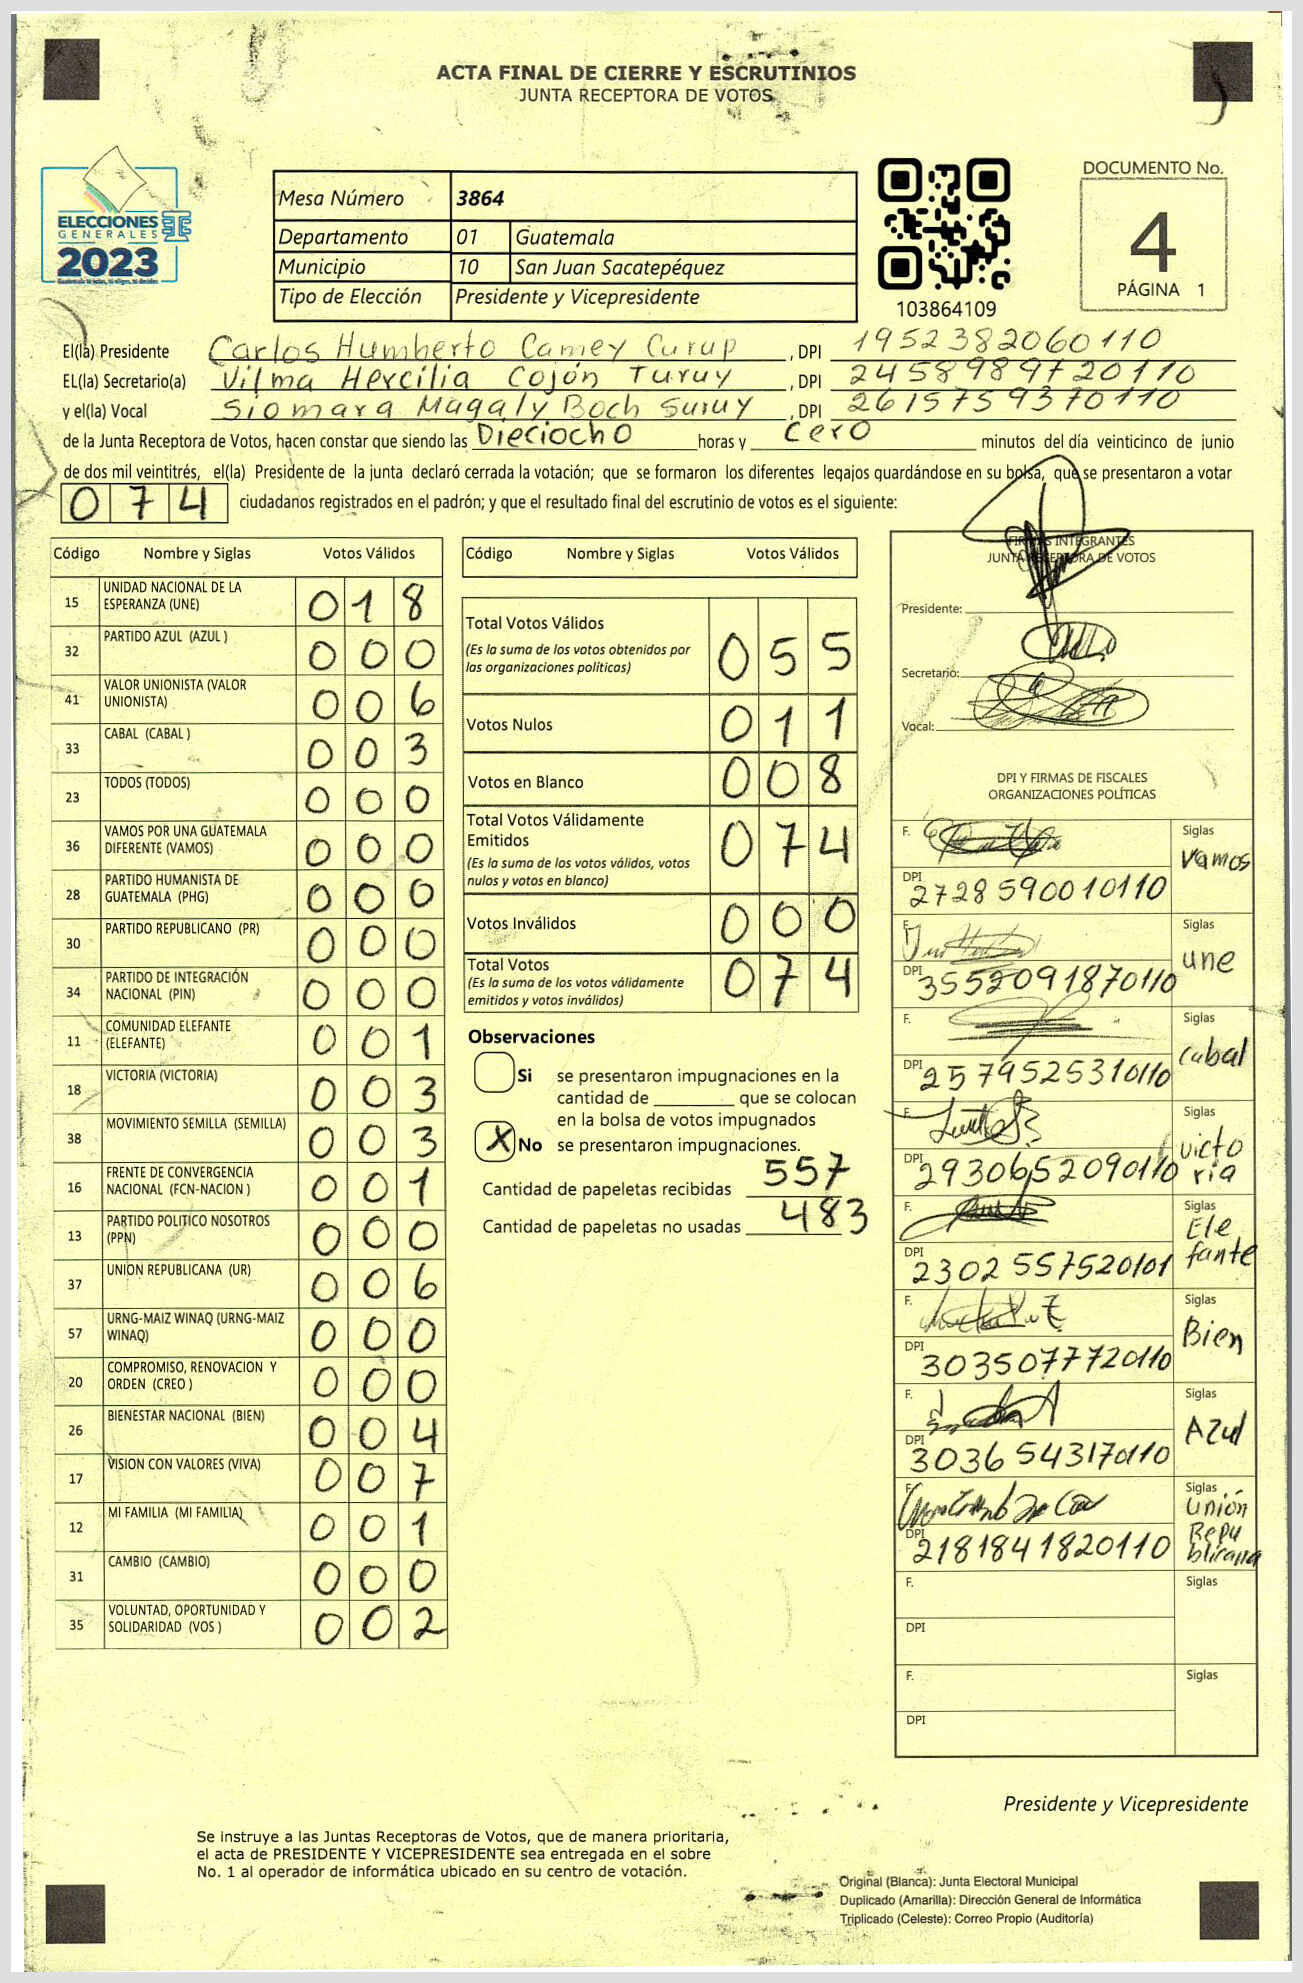 ACTA FINAL DE CIERRE Y ESCRUTINIOS
JUNTA RECEPTORA DE VOTOS
ELECCIONES
GENERALES
2023
Mesa Número 3864
Departamento 01 Guatemala
Municipio 10 San Juan Sacatepéquez
Tipo de Elección Presidente y Vicepresidente
103864109
DOCUMENTO No.
4
PÁGINA 1
El(la) Presidente Carlos Humberto Camey Curup , DPI 1952382060110
EL(la) Secretario(a) Vilma Hercilia Cojón Turuy , DPI 2458989720110
y el(la) Vocal Siomara Magaly Boch Suruy , DPI 2615759370110
de la Junta Receptora de Votos, hacen constar que siendo las Dieciocho horas y cero minutos del día veinticinco de junio
de dos mil veintitrés, el(la) Presidente de la junta declaró cerrada la votación; que se formaron los diferentes legajos guardándose en su bolsa, que se presentaron a votar
074 ciudadanos registrados en el padrón; y que el resultado final del escrutinio de votos es el siguiente:
Código Nombre y Siglas Votos Válidos
15 UNIDAD NACIONAL DE LA ESPERANZA (UNE) 018
32 PARTIDO AZUL (AZUL ) 000
41 VALOR UNIONISTA (VALOR UNIONISTA) 006
33 CABAL (CABAL ) 003
23 TODOS (TODOS) 000
36 VAMOS POR UNA GUATEMALA DIFERENTE (VAMOS) 000
28 PARTIDO HUMANISTA DE GUATEMALA (PHG) 000
30 PARTIDO REPUBLICANO (PR) 000
34 PARTIDO DE INTEGRACIÓN NACIONAL (PIN) 000
11 COMUNIDAD ELEFANTE (ELEFANTE) 001
18 VICTORIA (VICTORIA) 003
38 MOVIMIENTO SEMILLA (SEMILLA) 003
16 FRENTE DE CONVERGENCIA NACIONAL (FCN-NACION ) 001
13 PARTIDO POLITICO NOSOTROS (PPN) 000
37 UNION REPUBLICANA (UR) 006
57 URNG-MAIZ WINAQ (URNG-MAIZ WINAQ) 000
20 COMPROMISO, RENOVACION Y ORDEN (CREO ) 000
26 BIENESTAR NACIONAL (BIEN) 004
17 VISION CON VALORES (VIVA) 007
12 MI FAMILIA (MI FAMILIA) 001
31 CAMBIO (CAMBIO) 000
35 VOLUNTAD, OPORTUNIDAD Y SOLIDARIDAD (VOS ) 002
Código Nombre y Siglas Votos Válidos
Total Votos Válidos 055
(Es la suma de los votos obtenidos por
las organizaciones políticas)
Votos Nulos 011
Votos en Blanco 008
Total Votos Válidamente
Emitidos 074
(Es la suma de los votos válidos, votos
nulos y votos en blanco)
Votos Inválidos 000
Total Votos 074
(Es la suma de los votos válidamente
emitidos y votos inválidos)
Observaciones
Si se presentaron impugnaciones en la
cantidad de ________ que se colocan
en la bolsa de votos impugnados
X No se presentaron impugnaciones.
Cantidad de papeletas recibidas 557
Cantidad de papeletas no usadas 483
FIRMAS INTEGRANTES
JUNTA RECEPTORA DE VOTOS
Presidente:
Secretario:
Vocal:
DPI Y FIRMAS DE FISCALES
ORGANIZACIONES POLÍTICAS
F. Siglas Vamos
DPI 2728590010110
F. Siglas une
DPI 3552091870110
F. Siglas cabal
DPI 2579525310110
F. Siglas victo
ria
DPI 2930652090110
F. Siglas Ele
fante
DPI 2302557520101
F. Siglas Bien
DPI 3035077720110
F. Siglas Azul
DPI 3036543170110
F. Siglas Unión
Repu
blicana
DPI 2181841820110
F. Siglas
DPI
F. Siglas
DPI
Presidente y Vicepresidente
Se instruye a las Juntas Receptoras de Votos, que de manera prioritaria,
el acta de PRESIDENTE Y VICEPRESIDENTE sea entregada en el sobre
No. 1 al operador de informática ubicado en su centro de votación.
Original (Blanca): Junta Electoral Municipal
Duplicado (Amarilla): Dirección General de Informática
Triplicado (Celeste): Correo Propio (Auditoría)